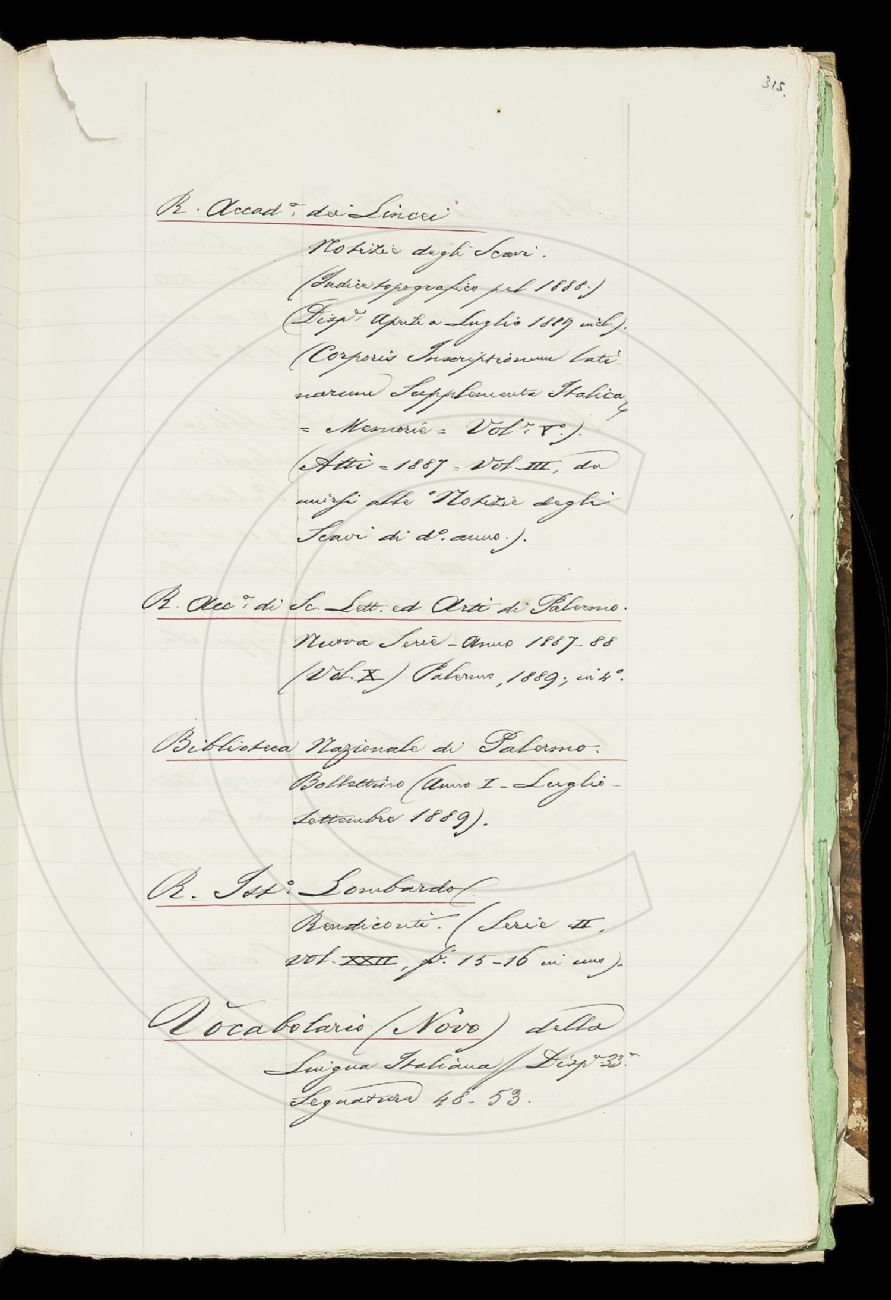 315.
R. Accad.ª dei Lincei
Notizie degli Scavi.
(Indice topografico pel 1888.)
(Disp.ᵉ Aprile a Luglio 1889 incl.).
(Corporis Inscriptionum lati
narum Supplementa Italica,
= Memorie = Vol.ᵉ Vº).
(Atti = 1887 = Vol. III, da
unirsi alle "Notizie degli
Scavi di dº. anno.).
R. Acc.ª di Sc. Lett. ed Arti di Palermo.
Nuova Serie - Anno 1887-88
(Vol. X) Palermo, 1889; in 4º.
Biblioteca Nazionale di Palermo.
Bollettino (Anno I - Luglio-
Settembre 1889).
R. Istº. Lombardo
Rendiconti. (Serie II,
vol. XXII, fº. 15-16 in uno).
Vocabolario (Novo) della
Lingua Italiana // Disp.ª 33ª.
Segnatura 48-53.